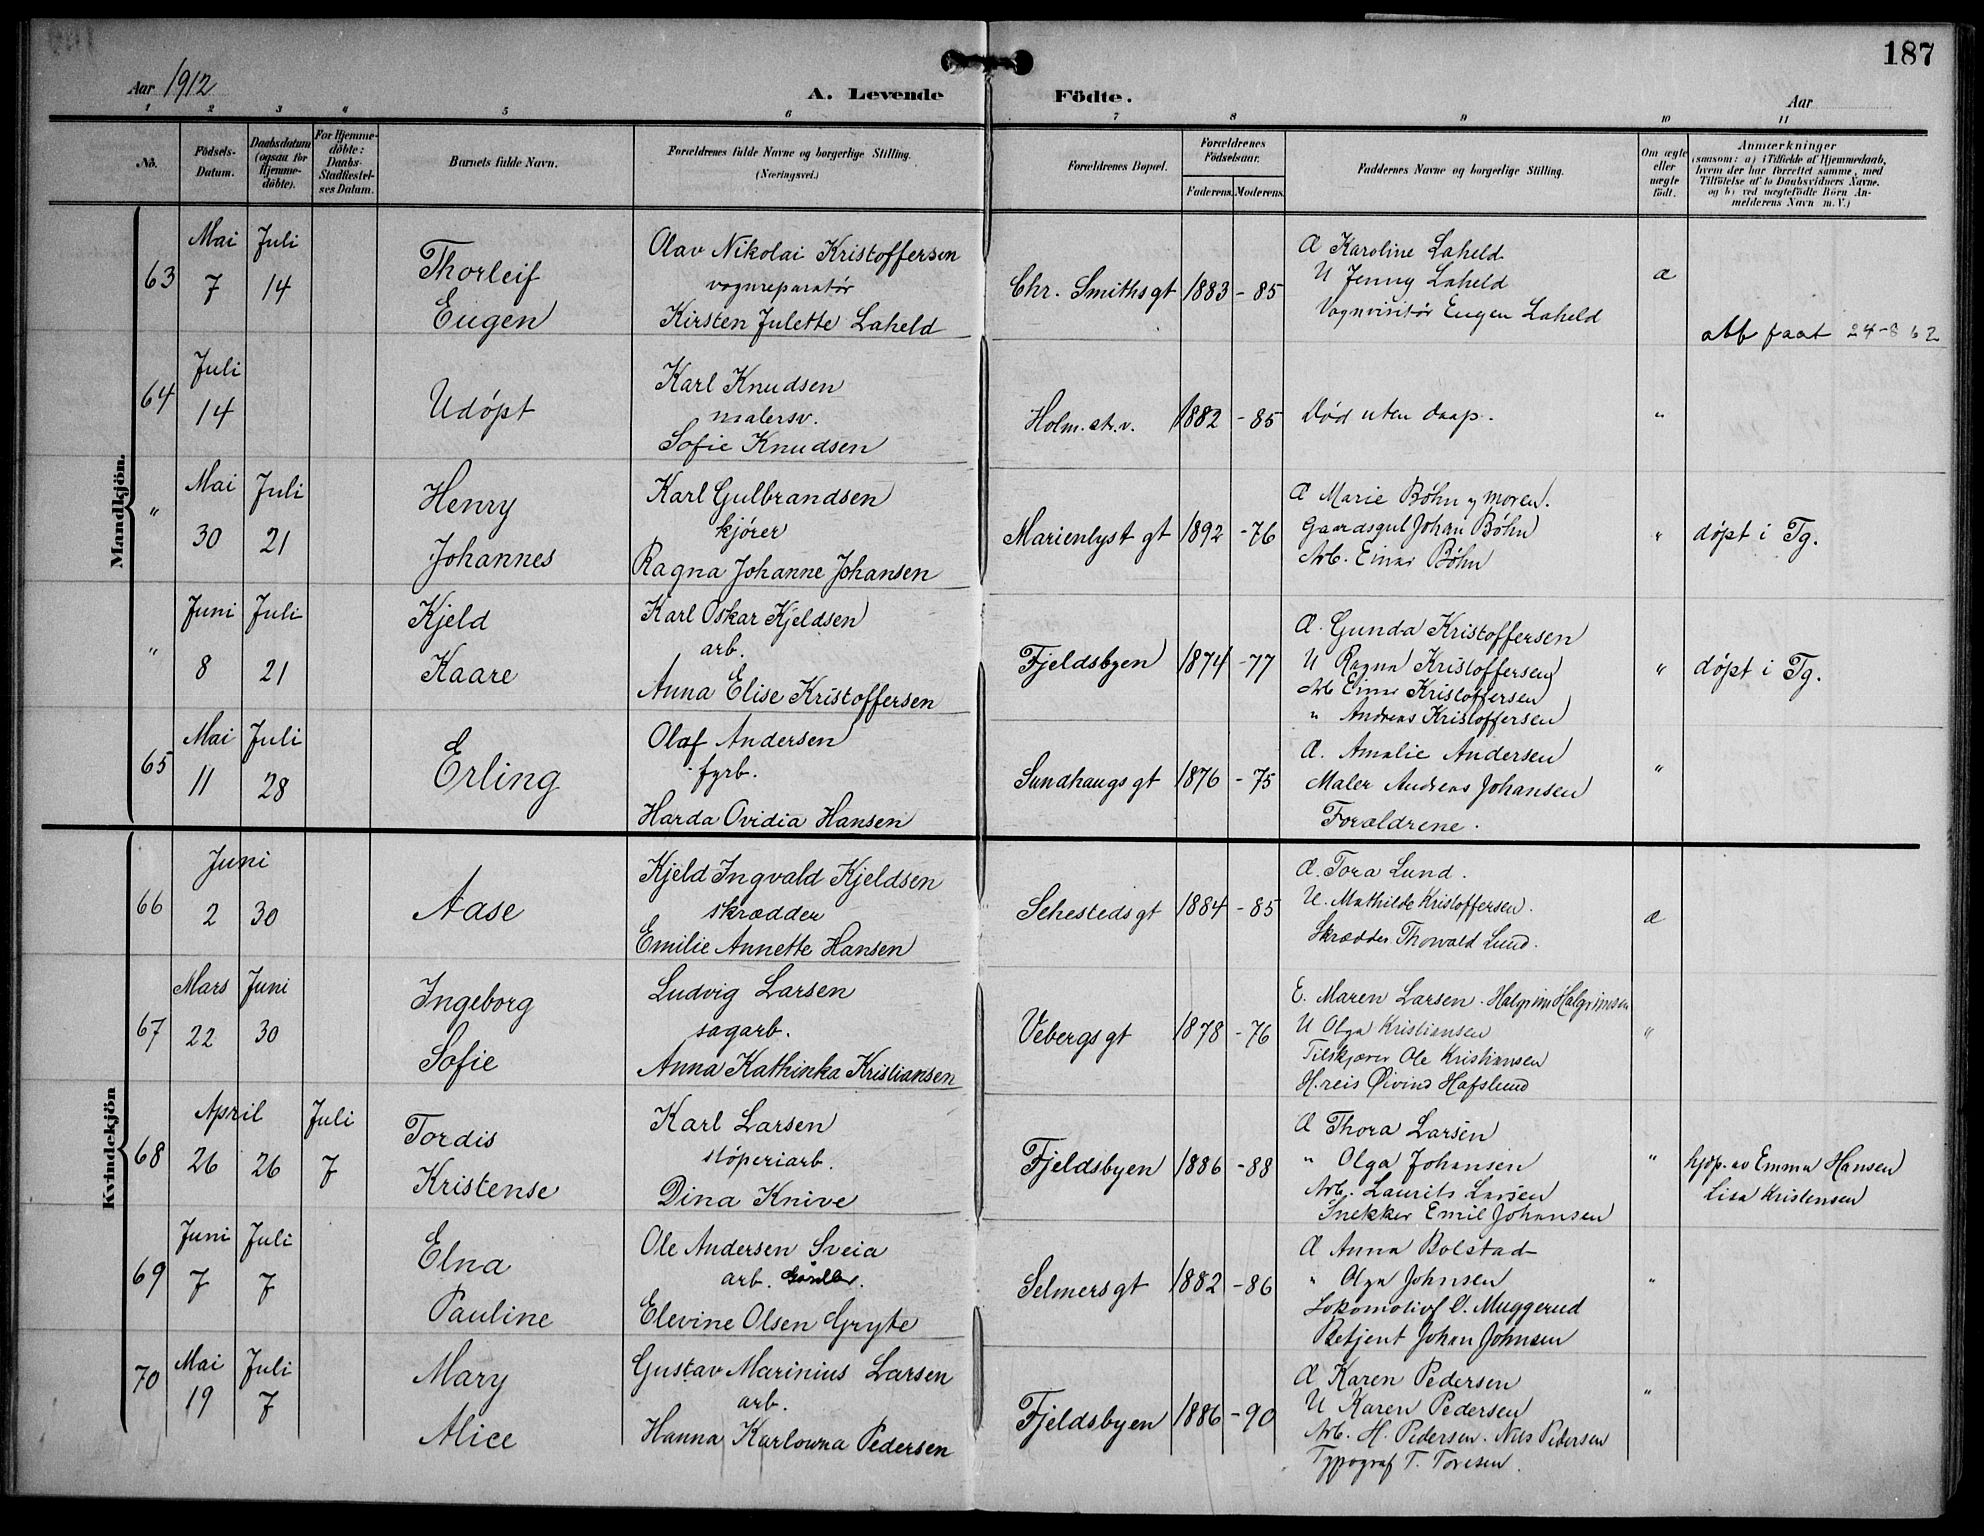 187
Aar 1912
A. Levende Födte.
Aar
1 2 3 4 5 6 7 8 9 10 11
No.
Födsels-Datum.
Daabsdatum (ogsaa for Hjemme-döbte).
For Hjemme-döbte: Daabs-Stadfæstel-ses Datum.
Barnets fulde Navn.
Forældrenes fulde Navne og borgerlige Stilling. (Næringsvei.)
Forældrenes Bopæl.
Forældrenes Födselsaar.
Faderens. Moderens.
Faddernes Navne og borgerlige Stilling.
Om ægte eller uægte födt.
Anmærkninger
(saasom: a) i Tilfælde af Hjemmedaab,
hvem der har forrettet samme, med
Tilföielse af to Daabsvidners Navne.
og b) ved uægtefödte Börn An-
melderens Navn m. V.)
Mandkjön.
63 Mai 7 Juli 14
Thorleif
Eugen
Olav Nikolai Kristoffersen
vognreparatør
Kirsten Julette Laheld
Chr. Smiths gt 1883 -85
Æ Karoline Laheld
U Jenny Laheld
Vognvisitør Eugen Laheld
æ
att faat 24-8 62
64 Juli 14
Udøpt
Karl Knudsen
malersv.
Sofie Knudsen
Holm. str. v. 1882 -85
Død uten daap.
"
" Mai 30 Juli 21
Henry
Johannes
Karl Gulbrandsen
kjører
Ragna Johanne Johansen
Marienlyst gt 1892 -76
Æ Marie Bøhn og moren.
Gaardsgut Johan Bøhn
Arb. Einar Bøhn
"
døpt i Tg.
" Juni 8 Juli 21
Kjeld
Kaare
Karl Oskar Kjeldsen
arb.
Anna Elise Kristoffersen
Fjeldsbyen 1874 -77
Æ. Gunda Kristoffersen
U Ragna Kristoffersen
Arb Einar Kristoffersen
" Andreas Kristoffersen
"
døpt i Tg.
65 Mai 11 Juli 28
Erling
Olaf Andersen
fyrb.
Harda Ovidia Hansen
Sundhaugs gt 1876 -75
Æ. Amalie Andersen
Maler Andreas Johansen
Forældrene.
"
Kvindekjön
66 Juni 2 30
Aase
Kjeld Ingvald Kjeldsen
skrædder
Emilie Annette Hansen
Sehesteds gt 1884 -85
Æ. Tora Lund.
U. Mathilde Kristoffersen.
Skrædder Thorvald Lund.
æ
67 Mars 22 Juni 30
Ingeborg
Sofie
Ludvig Larsen
sagarb.
Anna Kathinka Kristiansen
Vebergs gt 1878 -76
E. Maren Larsen. Halgrim Halgrimsen
U Olga Kristiansen
Tilskjærer Ole Kristiansen
H.reis Øivind Hafslund
"
68 April 26 26 Juli 7
Tordis
Kristense
Karl Larsen
støperiarb.
Dina Knive
Fjeldsbyen 1886 -88
Æ Thora Larsen
" Olga Johansen
Arb. Laurits Larsen
Snekker Emil Johansen
"
hjdp. av Emma Hansen
Lisa Kristensen
69 Juni 7 Juli 7
Elna
Pauline
Ole Andersen Sveia
arb.
Elevine Olsen Gryte
Selmers gt 1882 -86
Æ Anna Bolstad
" Olga Johnsen
Lokomotivf O. Muggerud
Betjent Johan Johnsen
"
70 Mai 19 Juli 7
Mary
Alice
Gustav Marinius Larsen
arb.
Hanna Karlowna Pedersen
Fjeldsbyen 1886 -90
Æ Karen Pedersen
U Karen Pedersen
Arb. H. Pedersen. Nils Pedersen
Typograf T. Toresen.
"